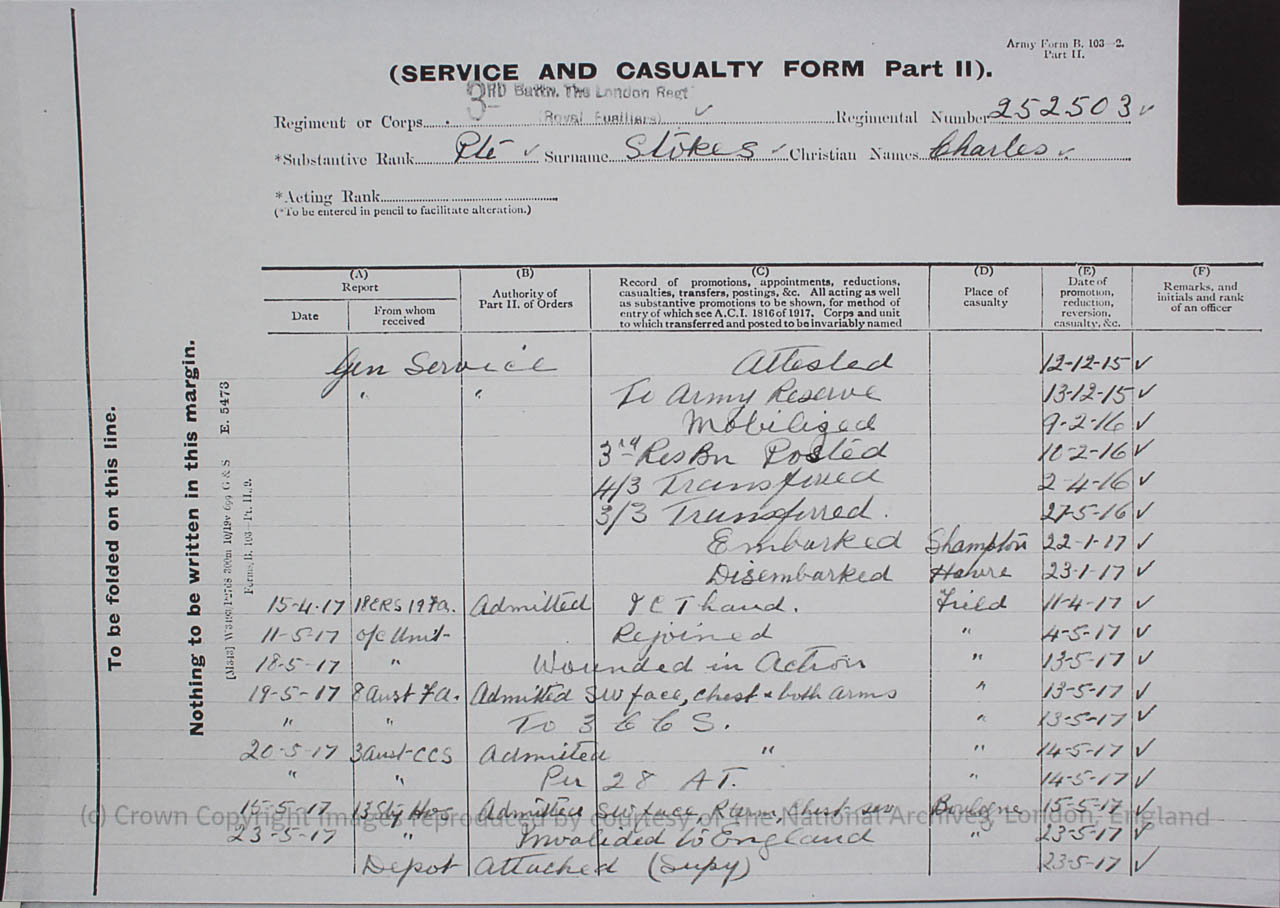 Army Form B. 103—2.
Part II.
(SERVICE AND CASUALTY FORM Part II).
3RD Battn. The London Regt
(Royal Fusiliers)
Regiment or Corps Regimental Number 252503
*Substantive Rank Pte Surname Stokes Christian Names Charles
*Acting Rank
(*To be entered in pencil to facilitate alteration.)
To be folded on this line.
Nothing to be written in this margin.
E. 5473
Forms/B. 103—Pt. II./2.
(A) Report
Date
From whom received
(B)
Authority of
Part II. of Orders
(C)
Record of promotions, appointments, reductions,
casualties, transfers, postings, &c. All acting as well
as substantive promotions to be shown, for method of
entry of which see A.C.I. 1816 of 1917. Corps and unit
to which transferred and posted to be invariably named
(D)
Place of
casualty
(E)
Date of
promotion,
reduction,
reversion,
casualty, &c.
(F)
Remarks, and
initials and rank
of an officer
Gen Service Attested 12-12-15 ✓
" " To Army Reserve 13-12-15 ✓
Mobilized 9-2-16 ✓
3rd Res Bn Posted 10-2-16 ✓
4/3 Transferred 2-4-16 ✓
3/3 Transferred. 27-5-16 ✓
Embarked Shampton 22-1-17 ✓
Disembarked Havre 23-1-17 ✓
15-4-17 18CRS 19Fa. Admitted I C T hand. Field 11-4-17 ✓
11-5-17 o/c Unit- Rejoined " 4-5-17 ✓
18-5-17 " Wounded in Action " 13-5-17 ✓
19-5-17 8 Aust Fa. Admitted SW face, chest & both arms " 13-5-17 ✓
" " To 3 C C S. " 13-5-17 ✓
20-5-17 3 Aust CCS Admitted " " 14-5-17 ✓
" " Per 28 A T. " 14-5-17 ✓
15-5-17 13 Sty Hos Admitted SW face, R arm, chest Boulogne 15-5-17 ✓
23-5-17 " Invalided to England " 23-5-17 ✓
Depot Attached (Supy) 23-5-17 ✓
(c) Crown Copyright Images reproduced by courtesy of The National Archives, London, England